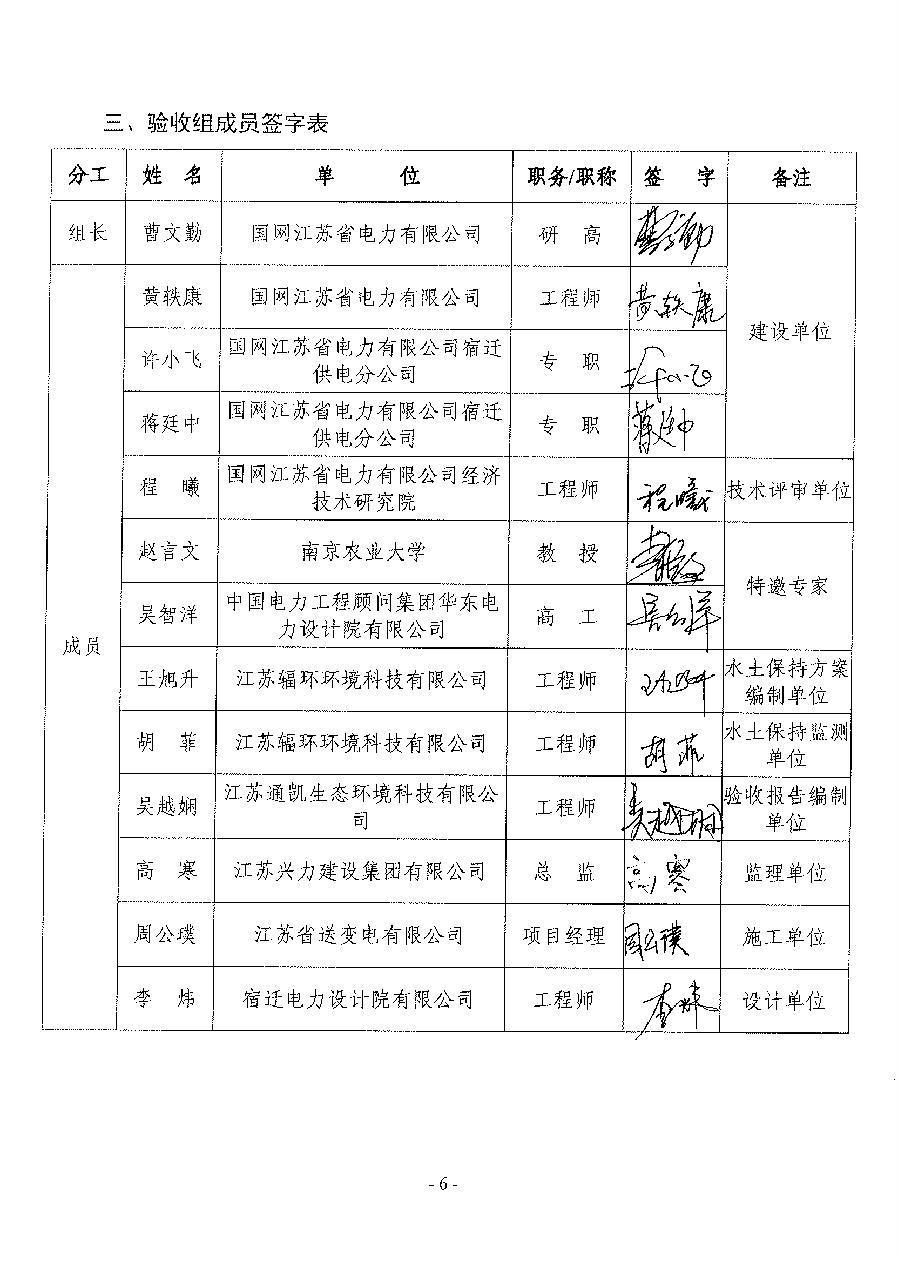 三、验收组成员签字表
分工 姓 名 单 位 职务/职称 签 字 备注
组长 曹文勤 国网江苏省电力有限公司 研 高
黄轶康 国网江苏省电力有限公司 工程师 黄轶康
建设单位
许小飞 国网江苏省电力有限公司宿迁
供电分公司 专 职
蒋廷中 国网江苏省电力有限公司宿迁
供电分公司 专 职 蒋廷中
程 曦 国网江苏省电力有限公司经济
技术研究院 工程师 程曦 技术评审单位
赵言文 南京农业大学 教 授
特邀专家
吴智洋 中国电力工程顾问集团华东电
力设计院有限公司 高 工
成员
王旭升 江苏辐环环境科技有限公司 工程师 水土保持方案
编制单位
胡 菲 江苏辐环环境科技有限公司 工程师 胡菲 水土保持监测
单位
吴越娴 江苏通凯生态环境科技有限公
司 工程师 吴越娴 验收报告编制
单位
高 寒 江苏兴力建设集团有限公司 总 监 高寒 监理单位
周公璞 江苏省送变电有限公司 项目经理 周公璞 施工单位
李 炜 宿迁电力设计院有限公司 工程师 李炜 设计单位
- 6 -